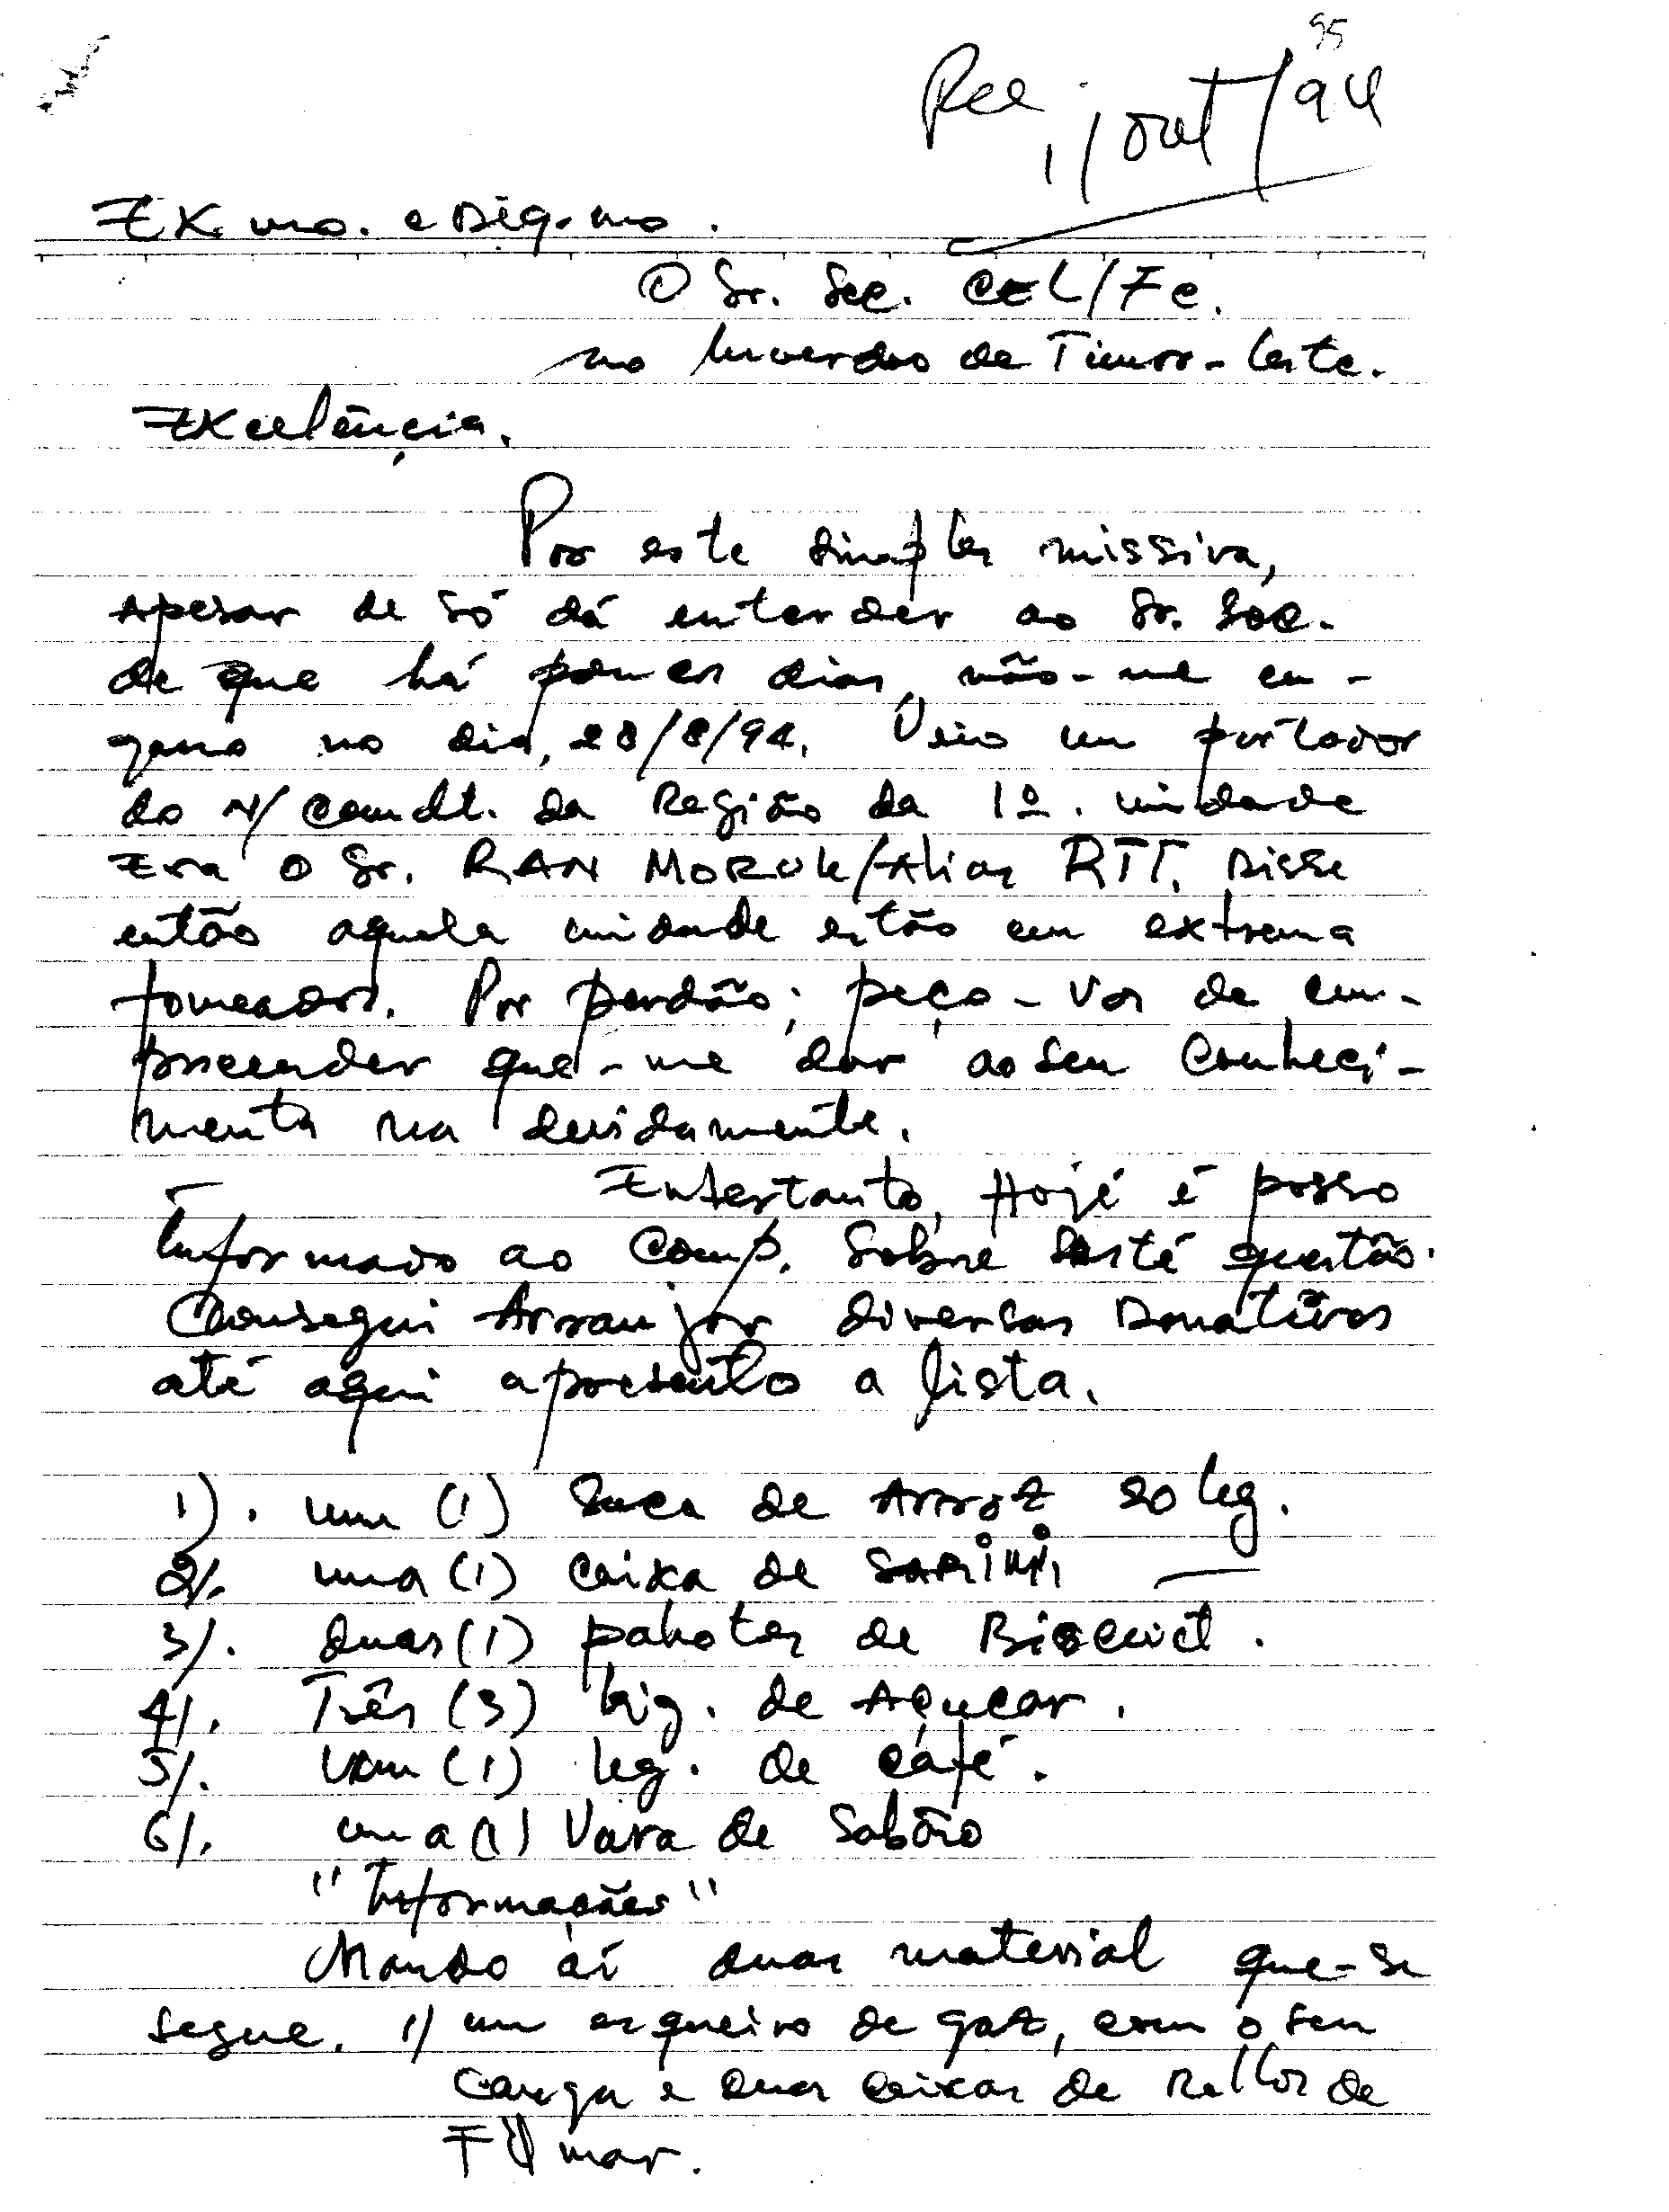 95
Rec 1/out/94
EX.mo. e Dig.mo.
O Sr. Sec. CEL/Fe.
no de Timor-Leste.
Excelência.
Por este simples missiva,
Apesar de só dá entender ao Sr. Sec.
de que há poucos dias, não-me en-
gano no dia, 28/8/94. Veio um portador
do N/ Comdt. da Região da 1ª. unidade
Era o Sr. RAN MORUK/Alias RTT. Disse
então aquela unidade estão em extrema
fomeados. Por perdão; peço-vos de com-
preender que-me dar ao seu Conheci-
mento na devidamente.
Entertanto, Hojé é posso
Informado ao Comp. Sobre questão.
Consegui Arranjar diversas Donativos
até aqui apresento a lista.
1). um (1) Saca de Arroz 20 kg.
2/. uma (1) Caixa de SARIMI —
3/. duas (1) pakotes de Biscuit.
4/. Três (3) kig. de Açucar.
5/. Um (1) kg. de café.
6/. uma (1) Vara de Sabão
"Informações"
Mando aí duas material que-se
segue. 1) um esqueiro de gaz, com o seu
carga e duas caixas de Rellos de
Fumar.